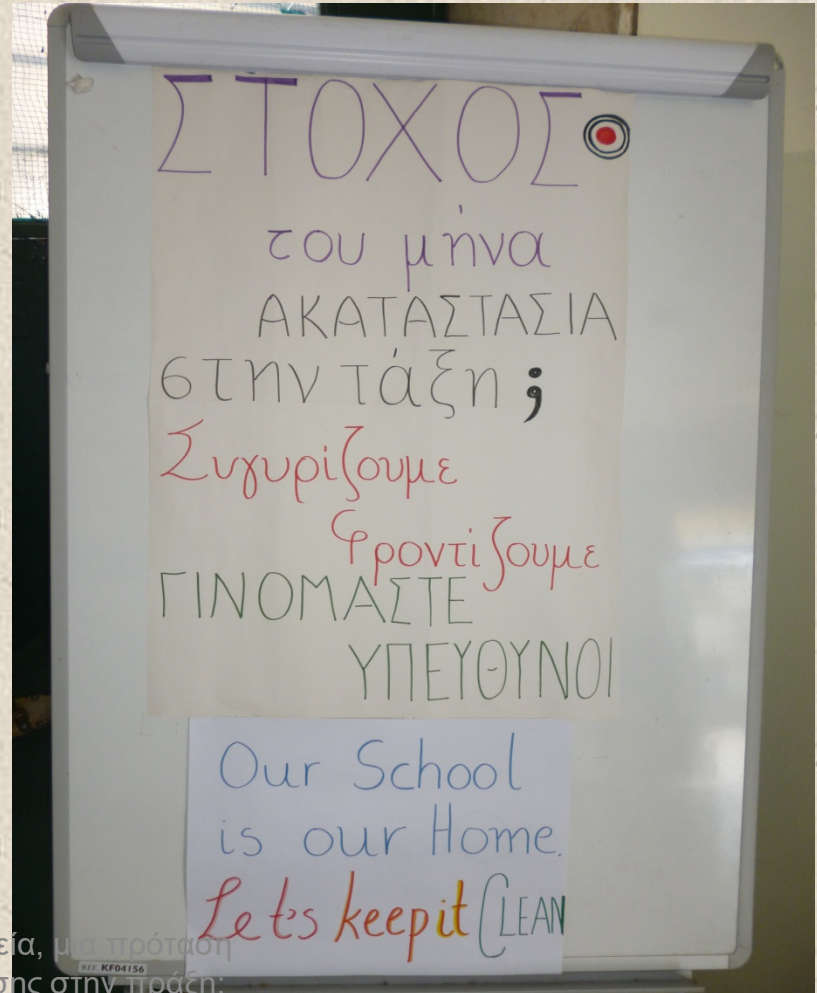 ΣΤΟΧΟΣ
του μήνα
ΑΚΑΤΑΣΤΑΣΙΑ
στην τάξη ;
Συγυρίζουμε
Φροντίζουμε
ΓΙΝΟΜΑΣΤΕ
ΥΠΕΥΘΥΝΟΙ
Our School
is our Home.
Let's keep it CLEAN
μια πρόταση
REF: KF04156
στην πράξη: